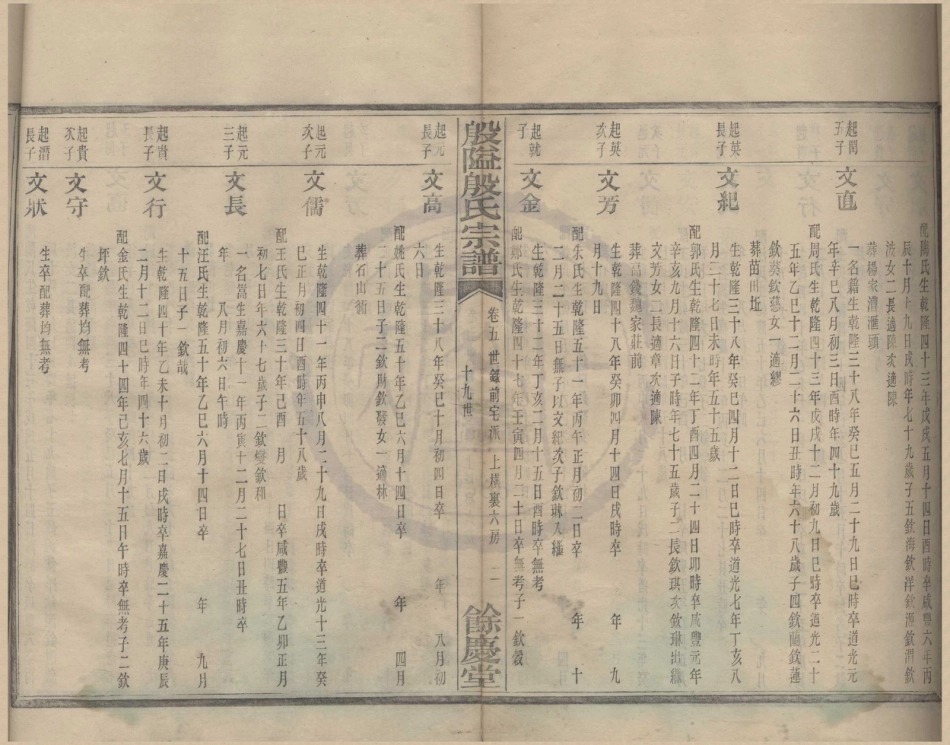 配陶氏生乾隆四十三年戊戌五月十四日酉時卒咸豐六年丙
辰十月十九日戌時年七十九歲子五欽海欽洋欽洲欽
女二長適陳次適陳
葬楊家灣滙頭
起
五子
文直
一名籍生乾隆三十八年癸巳五月二十九日巳時卒道光元
年辛巳八月初三日酉時年四十九歲
配周氏生乾隆四十三年戊戌十二月初九日巳時卒道光二十
五年乙巳十二月二十六日丑時年六十八歲子四欽蘭欽蓮
欽葵欽慈女一適繆
葬苗田坵
起英
長子
文紀
生乾隆三十八年癸巳四月十二日巳時卒道光七年丁亥八
月二十七日未時年五十五歲
配郭氏生乾隆四十二年丁酉四月二十四日卯時卒咸豐元年
辛亥九月十六日子時年七十五歲子二長欽琪次欽琳出繼
文芳女二長適章次適陳
葬昌錢魏家莊前
起英
次子
文芳
生乾隆四十八年癸卯四月十四日戌時卒 年 九
月十九日
配朱氏生乾隆五十一年丙午正月初二日卒 年 十
二月二十五日無子以文紀次子欽琳入繼
起就
子
文金
生乾隆三十二年丁亥二月十五日酉時卒無考
配鄭氏生乾隆四十七年壬寅四月二十日卒無考子一欽穀
殷隘殷氏宗譜
卷五 世錄前宅派 上橫裏六房 二
十九世
餘慶堂
起元
長子
文高
生乾隆三十八年癸巳十月初四日卒 年 八月初
六日
配姚氏生乾隆五十年乙巳六月十四日卒 年 四月
二十五日子二欽財欽發女一適林
葬石山衕
起元
次子
文儒
生乾隆四十一年丙申八月二十九日戌時卒道光十三年癸
巳正月初四日酉時年五十八歲
配王氏生乾隆五十年己酉 月 日卒咸豐五年乙卯正月
初七日年六十七歲子二欽燮欽和
起元
三子
文長
一名嵩生嘉慶十一年丙寅十二月二十七日丑時卒
年 八月初六日午時
配汪氏生乾隆五十年乙巳六月十四日卒 年 九月
十五日子一欽哉
起貴
長子
文行
生乾隆四十年乙未十月初二日戌時卒嘉慶二十五年庚辰
二月十二日巳時年四十六歲
配金氏生乾隆四十四年己亥七月十五日午時卒無考子二欽
坪欽
起貴
次子
文守
生卒配葬均無考
起潛
長子
文狀
生卒配葬均無考